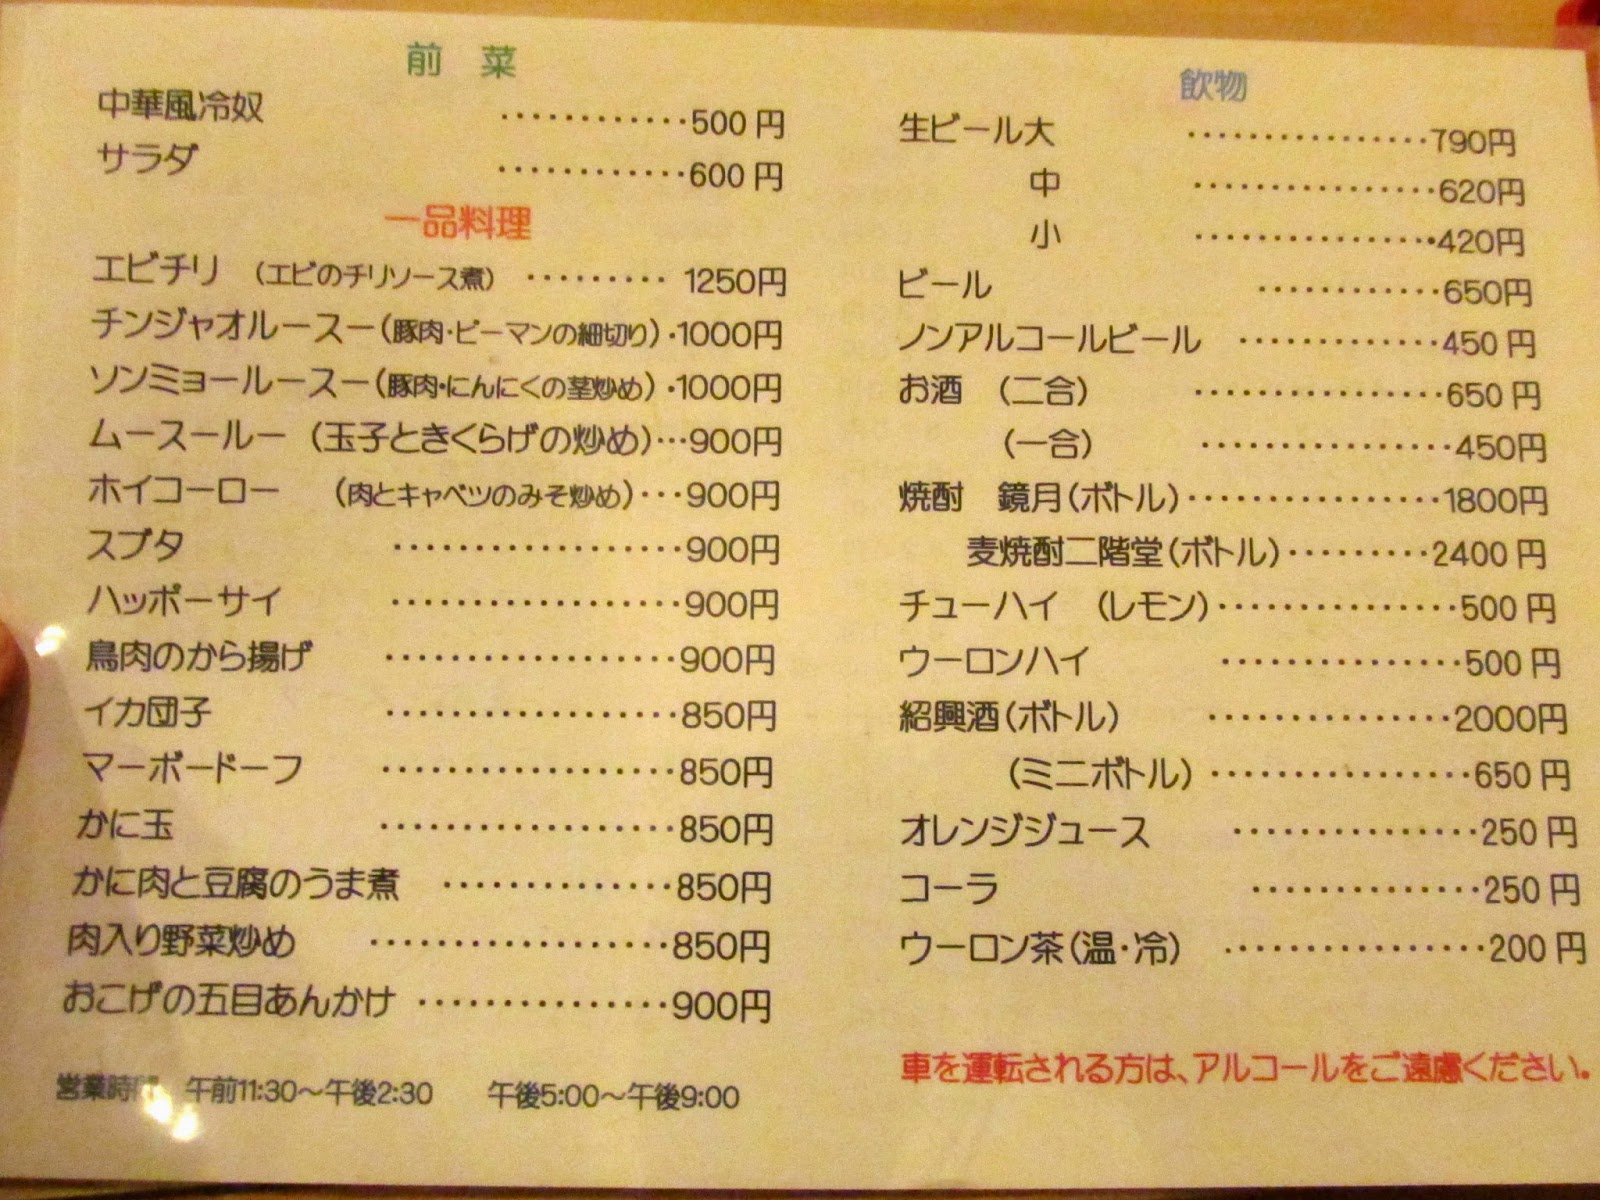 前 菜
中華風冷奴 ············500円
サラダ ············600円
一品料理
エビチリ (エビのチリソース煮) ········· 1250円
チンジャオルースー(豚肉・ピーマンの細切り)・1000円
ソンミョールースー(豚肉・にんにくの茎炒め)・1000円
ムースールー (玉子ときくらげの炒め)···900円
ホイコーロー (肉とキャベツのみそ炒め)···900円
スブタ ··················900円
ハッポーサイ ··················900円
鳥肉のから揚げ ··················900円
イカ団子 ··················850円
マーボードーフ ··················850円
かに玉 ··················850円
かに肉と豆腐のうま煮 ··············850円
肉入り野菜炒め ··················850円
おこげの五目あんかけ ···············900円
営業時間 午前11:30〜午後2:30 午後5:00〜午後9:00
飲物
生ビール大 ···············790円
中 ···············620円
小 ···············420円
ビール ···········650円
ノンアルコールビール ············450円
お酒 (二合) ···············650円
(一合) ···············450円
焼酎 鏡月(ボトル)···············1800円
麦焼酎二階堂(ボトル)·········2400円
チューハイ (レモン)··············500円
ウーロンハイ ··············500円
紹興酒(ボトル) ··············2000円
(ミニボトル) ···············650円
オレンジジュース ··············250円
コーラ ··············250円
ウーロン茶(温・冷) ···············200円
車を運転される方は、アルコールをご遠慮ください。